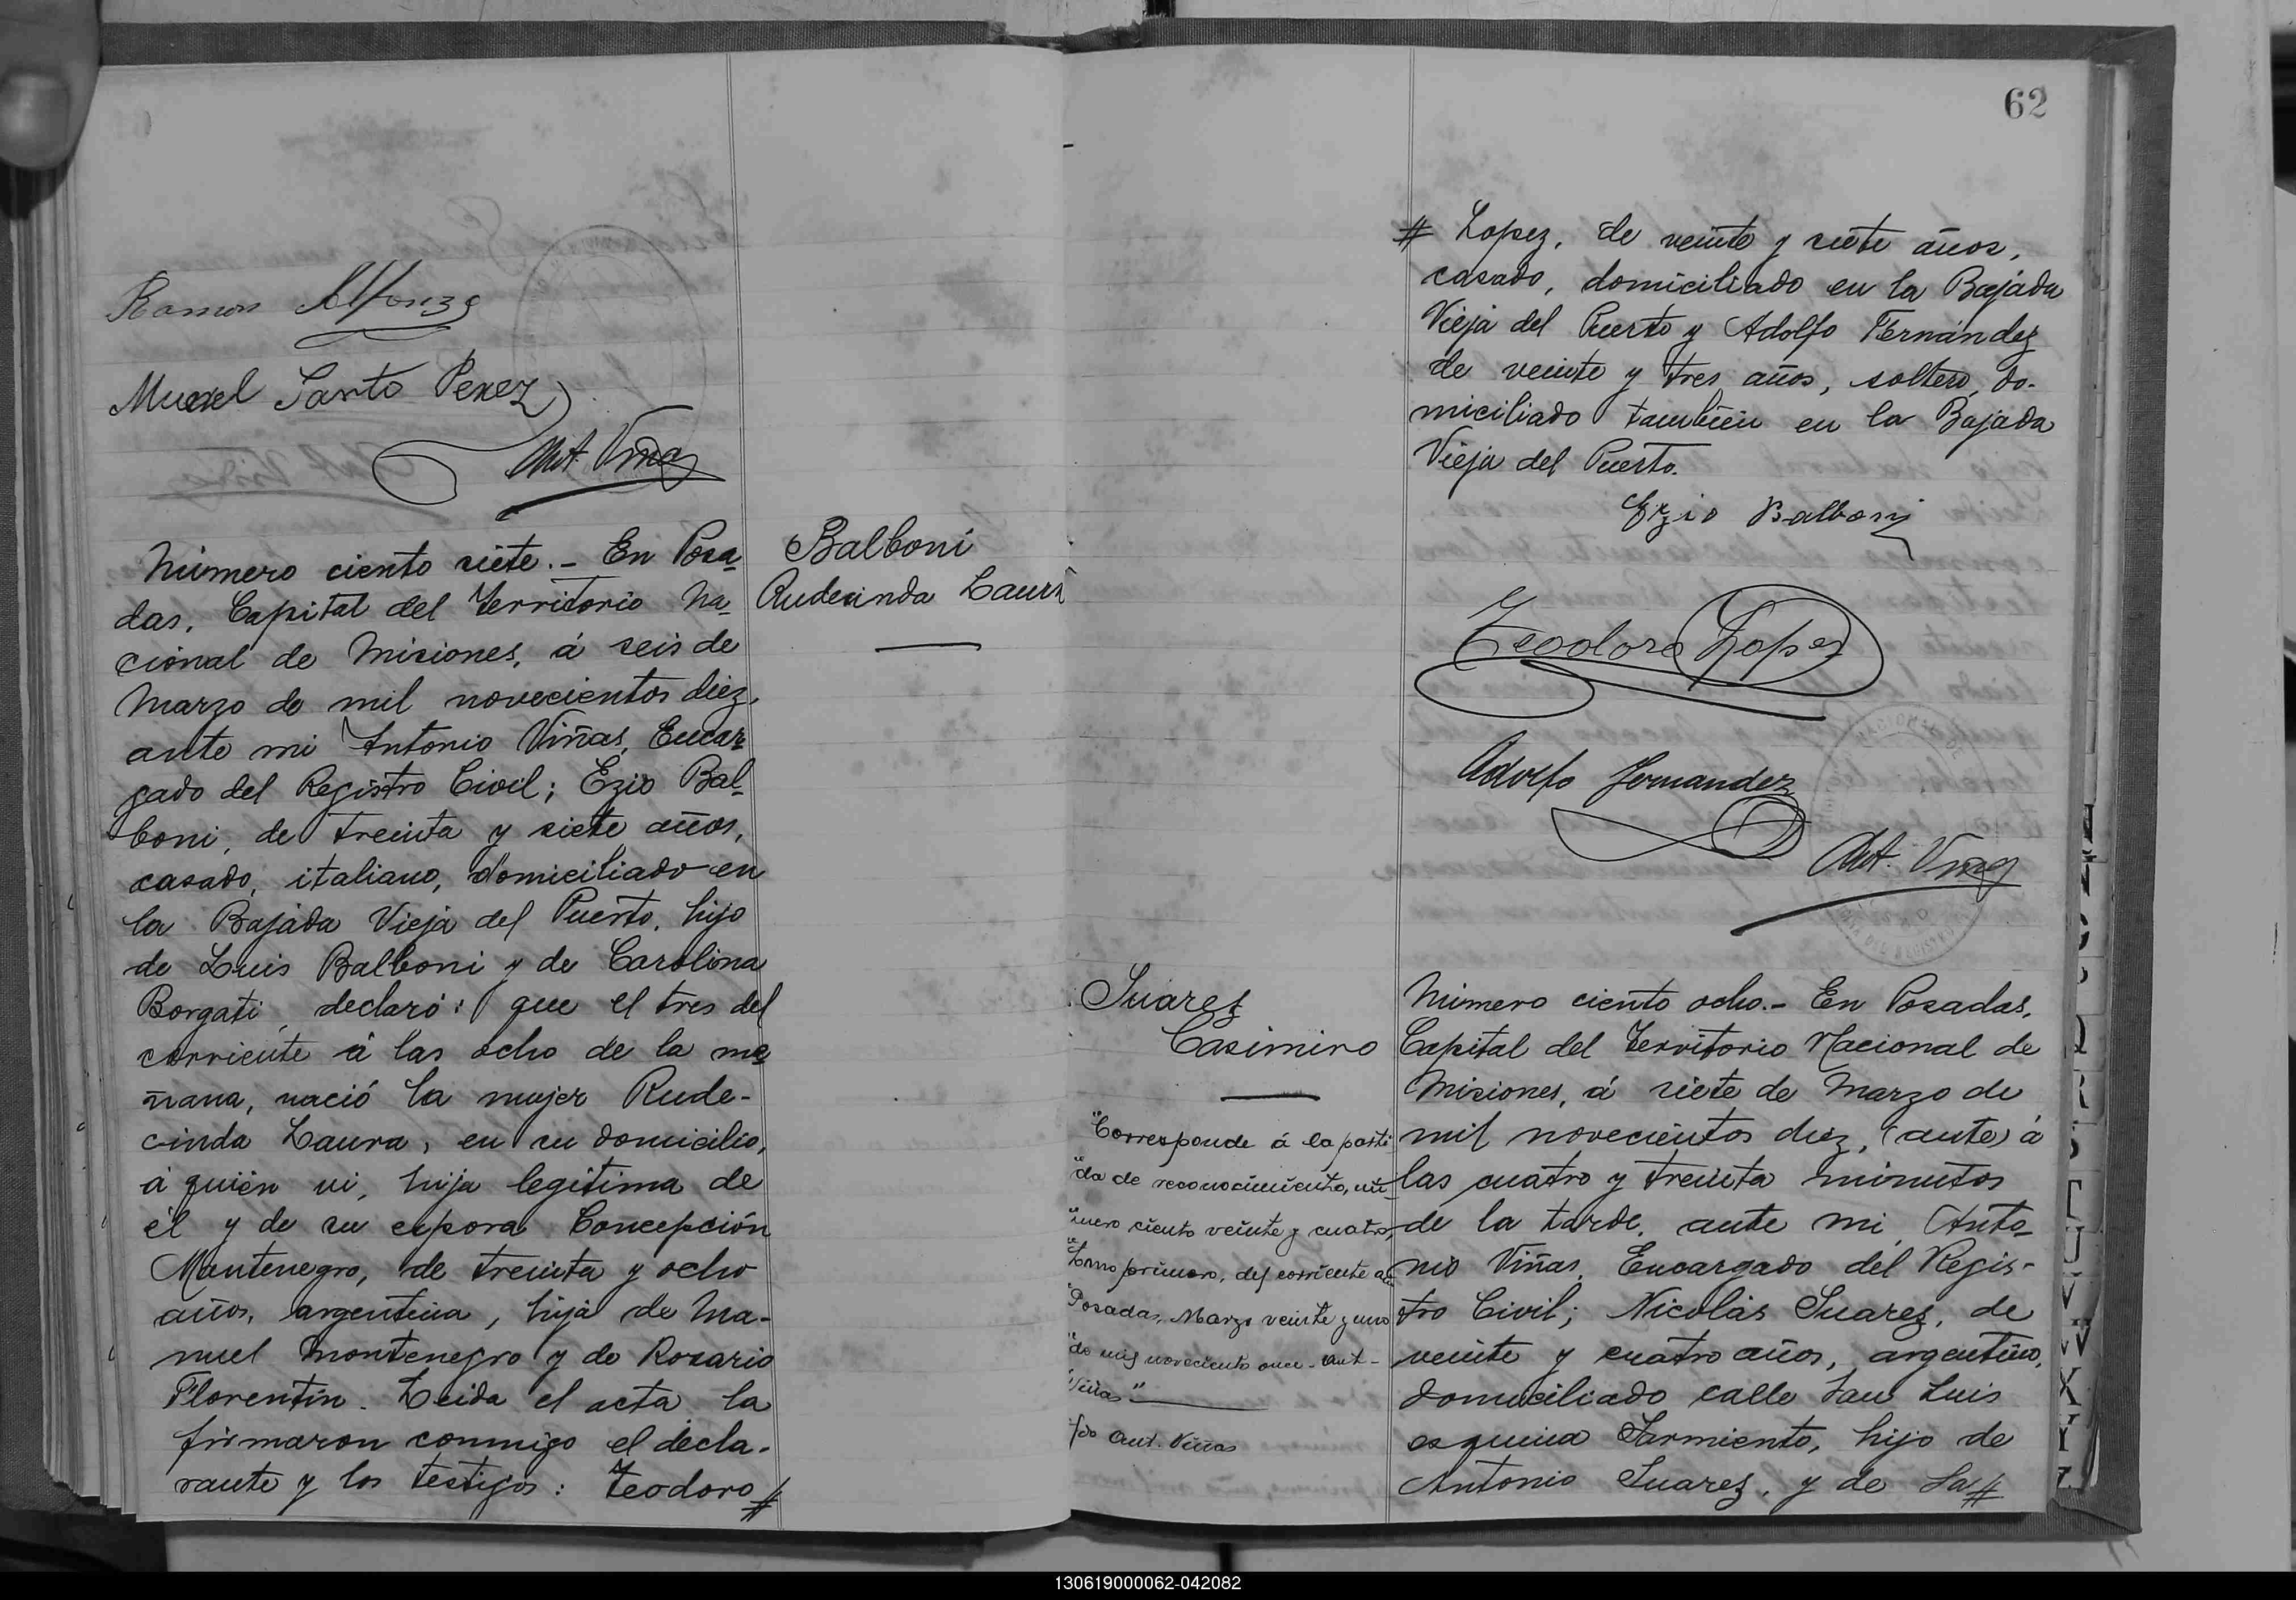 Ramon Alfonzo
Manuel Santo Perez
Ant. Viñas
Número ciento siete.- En Posa-
das, Capital del Territorio Na-
cional de Misiones, á seis de
Marzo de mil novecientos diez,
ante mi Antonio Viñas, Encar-
gado del Registro Civil; Ezio Bal-
boni, de treinta y siete años,
casado, italiano, domiciliado en
la Bajada Vieja del Puerto, hijo
de Luis Balboni y de Carolina
Borgati, declaró: que el tres del
corriente á las ocho de la ma-
ñana, nació la mujer Rude-
cinda Laura, en su domicilio,
á quién vi, hija legítima de
él y de su esposa Concepción
Montenegro, de treinta y ocho
años, argentina, hija de Ma-
nuel Montenegro y de Rosario
Florentín. Leida el acta la
firmaron conmigo el decla-
rante y los testigos: Teodoro #
Balboni
Rudecinda Laura
62
# Lopez, de veinte y siete años,
casado, domiciliado en la Bajada
Vieja del Puerto y Adolfo Fernández
de veinte y tres años, soltero, do-
miciliado también en la Bajada
Vieja del Puerto.
Ezio Balboni
Teodoro Lopez
Adolfo Fernandez
Ant. Viñas
Suarez
Casimiro
"Corresponde á la parti
"da de reconocimiento, nú-
"mero ciento veinte y cuatro,
"tomo primero, del corriente añ
"Posadas, Marzo veinte y uno
"de mil novecientos once - Ant-
"Viñas"
fdo Ant. Viñas
Número ciento ocho.- En Posadas,
Capital del Territorio Nacional de
Misiones, á siete de Marzo de
mil novecientos diez, (ante) á
las cuatro y treinta minutos
de la tarde, ante mi, Anto-
nio Viñas, Encargado del Regis-
tro Civil; Nicolás Suarez, de
veinte y cuatro años, argentino,
domiciliado calle San Luis
esquina Sarmiento, hijo de
Antonio Suarez, y de Sa#
130619000062-042082